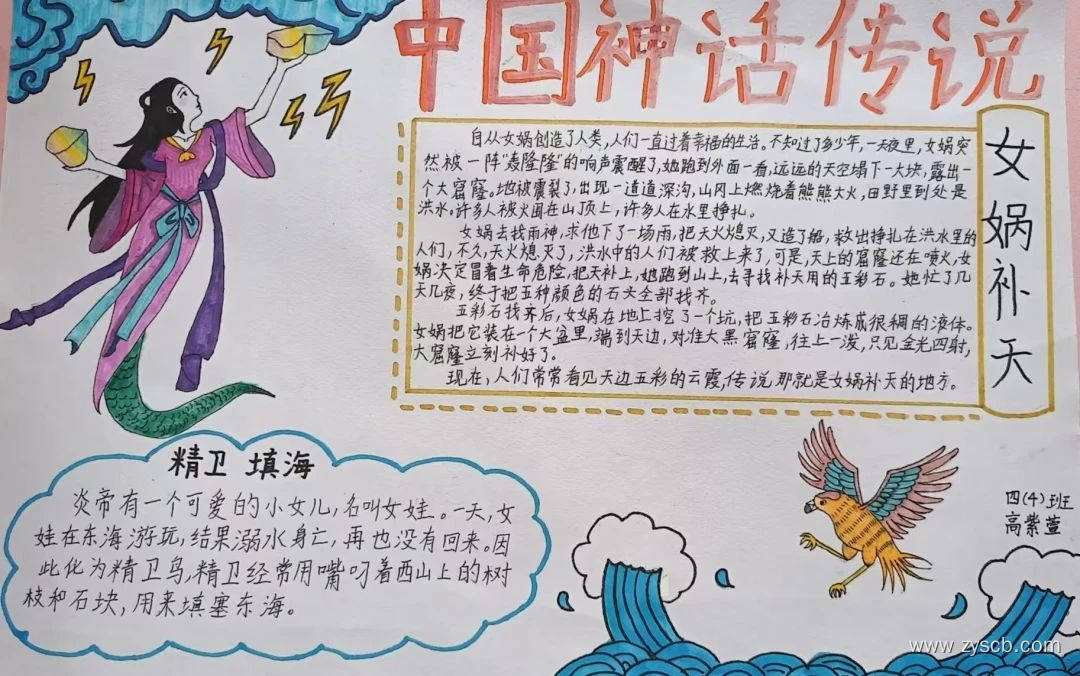 中国神话传说
女娲补天
自从女娲创造了人类,人们一直过着幸福的生活。不知过了多少年,一天夜里,女娲突
然被一阵“轰隆隆”的响声震醒了,她跑到外面一看,远远的天空塌下一大块,露出一
个大窟窿。地被震裂了,出现一道道深沟,山冈上燃烧着熊熊大火,田野里到处是
洪水。许多人被火围在山顶上,许多人在水里挣扎。
女娲去找雨神,求他下了一场雨,把天火熄灭,又造了船,救出挣扎在洪水里的
人们,不久,天火熄灭了,洪水中的人们被救上来了,可是,天上的窟窿还在喷火,女
娲决定冒着生命危险,把天补上,她跑到山上,去寻找补天用的五彩石。她忙了几
天几夜,终于把五种颜色的石头全部找齐。
五彩石找齐后,女娲在地上挖了一个坑,把五彩石冶炼成很稠的液体。
女娲把它装在一个大盆里,端到天边,对准大黑窟窿,往上一泼,只见金光四射,
大窟窿立刻补好了。
现在,人们常常看见天边五彩的云霞,传说那就是女娲补天的地方。
精卫 填海
炎帝有一个可爱的小女儿,名叫女娃。一天,女
娃在东海游玩,结果溺水身亡,再也没有回来。因
此化为精卫鸟,精卫经常用嘴叼着西山上的树
枝和石块,用来填塞东海。
四(4)班
高紫萱
www.zyscb.com